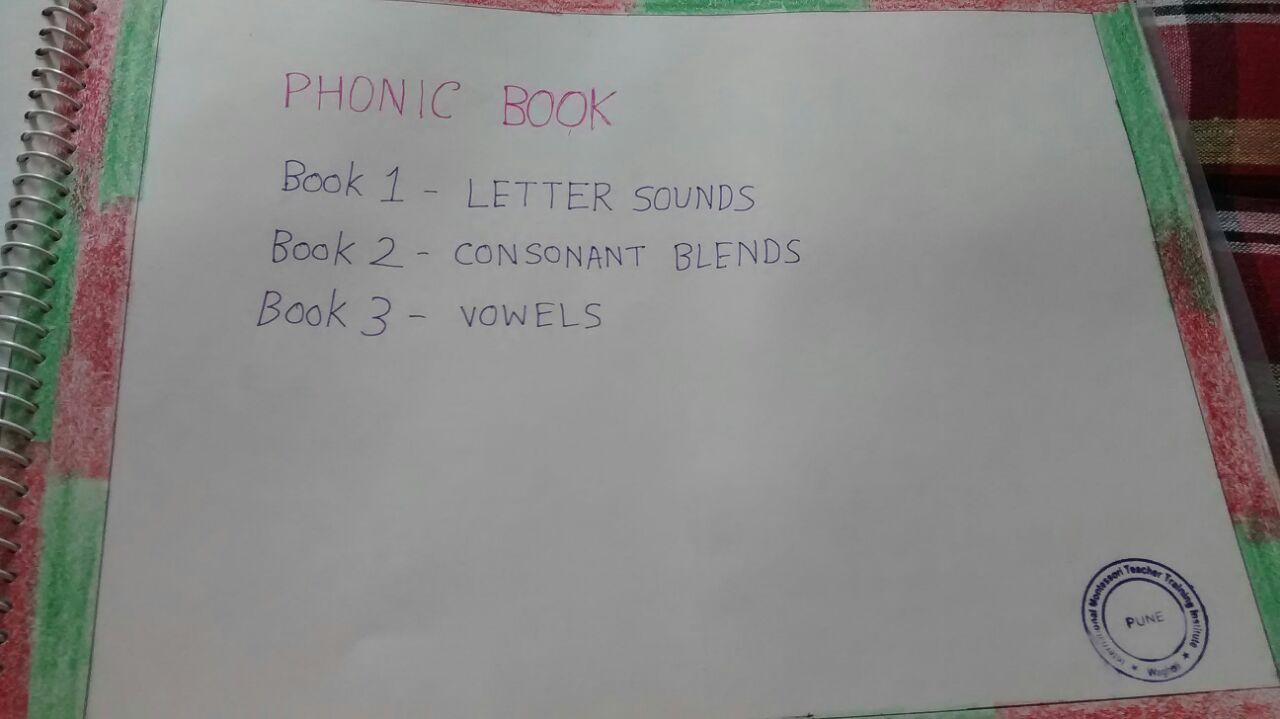 PHONIC BOOK
Book 1 - LETTER SOUNDS
Book 2 - CONSONANT BLENDS
Book 3 - VOWELS
International Montessori Teacher Training Institute
PUNE